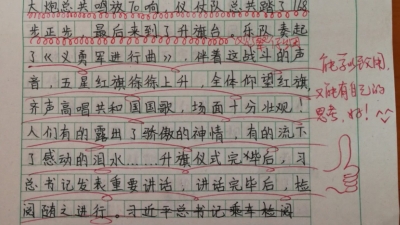 大炮总共鸣放70响，仪仗队总共踏了168
步正步，最后来到了升旗台。乐队奏起
了《义勇军进行曲》，伴着这战斗的声
音，五星红旗徐徐上升，全体仰望红旗，
齐声高唱共和国国歌，场面十分壮观！
人们有的露出了骄傲的神情，有的流下
了感动的泪水……升旗仪式完毕后，习
总书记发表重要讲话，讲话完毕后，检
阅随之进行。习近平总书记乘车检阅
能学以致用，
又能有自己的
思考，好！